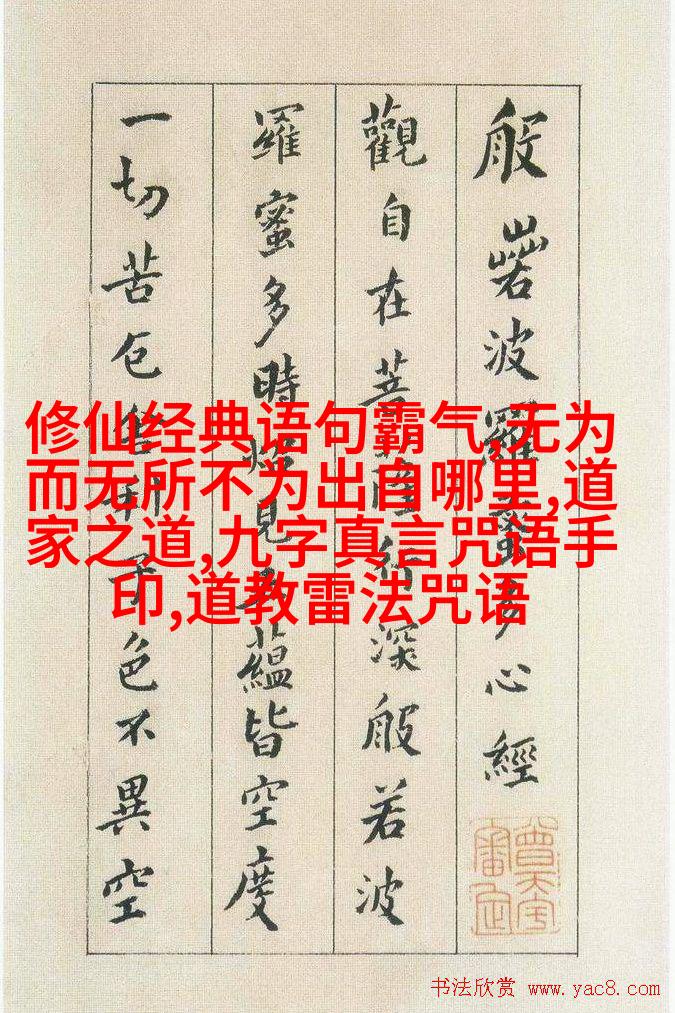 般若波羅蜜多心經
觀自在菩薩行深般若波
羅蜜多時照見五蘊皆空度
一切苦厄舍利子色不異空
修仙经典语句霸气,无为
而无所不为出自哪里,道
家之道,九字真言咒语手
印,道教雷法咒语
书法欣赏 www.yac8.com